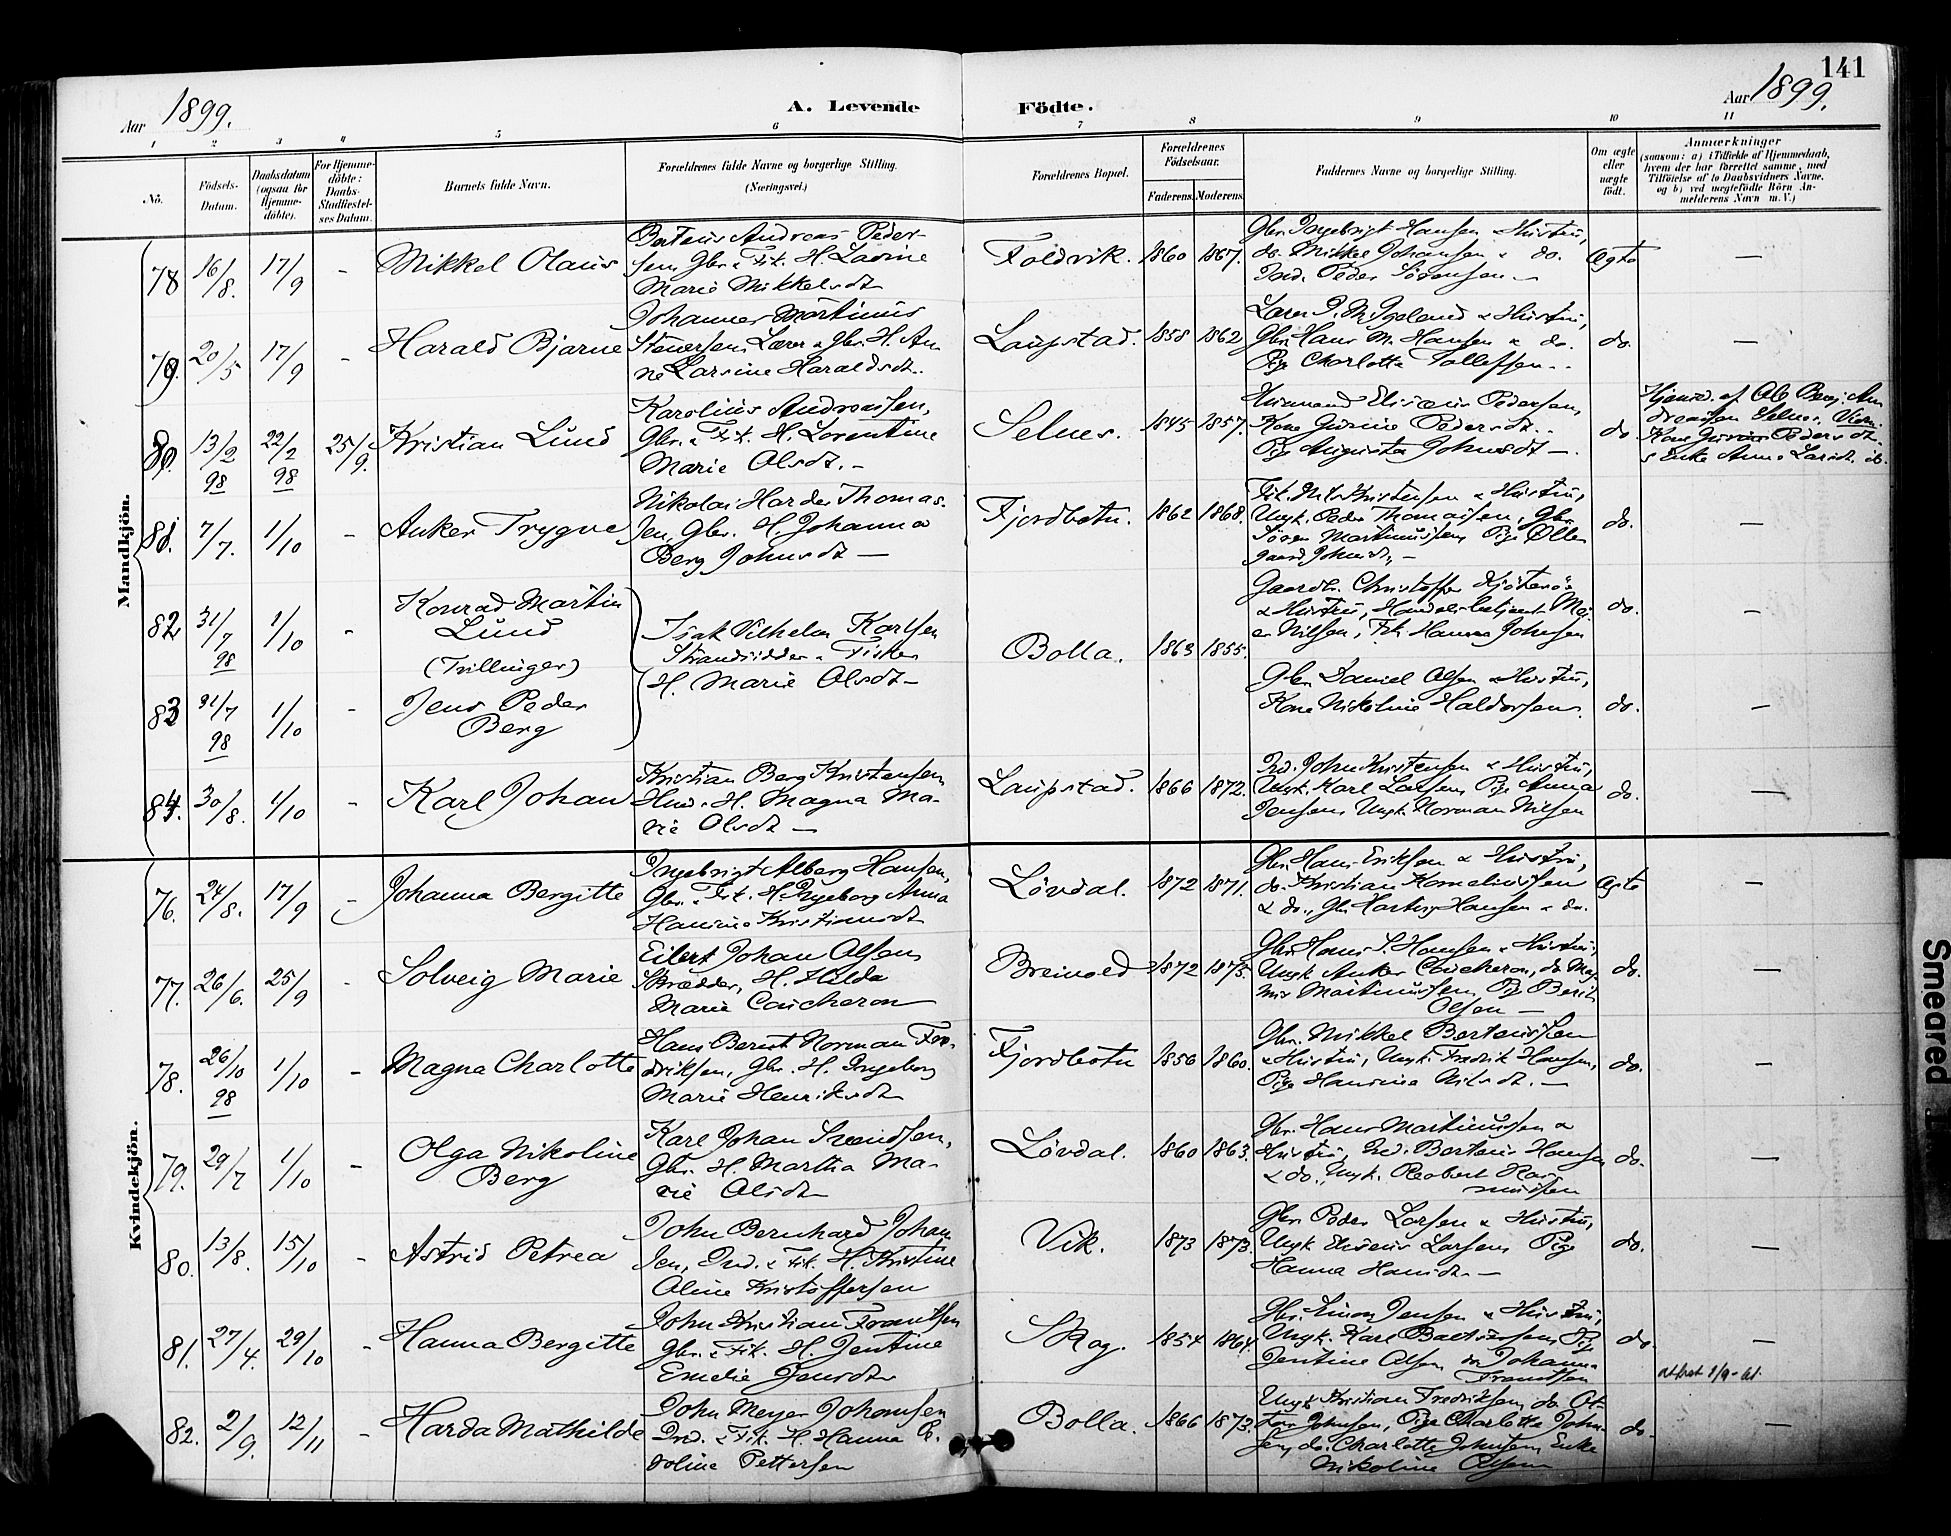 141
Aar 1899.
A. Levende Födte.
Aar 1899.
1 2 3 4 5 6 7 8 9 10 11
No.
Födsels-Datum.
Daabsdatum (ogsaa for Hjemme-döbte).
For Hjemme-döbte: Daabs-Stadfæstel-ses Datum.
Barnets fulde Navn.
Forældrenes fulde Navne og borgerlige Stilling. (Næringsvei.)
Forældrenes Bopæl.
Forældrenes Födselsaar.
Faderens. Moderens.
Faddernes Navne og borgerlige Stilling.
Om ægte eller uægte födt.
Anmærkninger
(saasom: a) i Tilfælde af Hjemmedaab, hvem der har forrettet samme, med Tilföielse af to Daabsvidners Navne, og b) ved uægtefödte Börn An-melderens Navn m. V.)
Mandkjön.
78 16/8. 17/9 - Mikkel Olaus
Berteus Andreas Peder-
sen Gbr. & Fisk. H. Lavine
Marie Mikkelsdt
Foldvik. 1860 1867.
Gbr. Ingebrigt Hansen & Hustru,
do. Mikkel Johansen & do.
Ind. Peder Sörensen —
Ægte —
79. 20/5 17/9 - Harald Bjarne
Johannes Martinus
Stenersen Lærer & Gbr. H. An-
ne Larsine Haraldsdt.
Laupstad. 1858 1862
Gbr. Hans M. Hansen & do.
Pige Charlotte Tollefsen..
do. —
80. 13/2 98 22/2 98 25/9. Kristian Lund
Karolius Andreassen,
Gbr. & Fisk. H. Lorentine
Marie Olsdt. —
Selnes. 1845 1857.
Husmand Elisæus Pedersen,
Kone Gurine Pedersdt..
Pige Augusta Johnsdt —.
do.
Hjemd. af Ole Berg An-
dreassen Selnes. Vidn.
Kone Gurine Pedersdt.
& Enke Anne Larsdt. ib.
81. 7/7. 1/10 - Anker Trygve
Nikolai Harder Thomas-
sen, Gbr. H. Johanna
Berg Johnsdt —
Fjordbotn. 1862 1868.
Fisk. Nils Kristensen & Hustru,
Ungk. Peder Thomassen, Gbr.
Sören Martinussen, Pige Olle-
gaard Johnsdt. —
do. —
82 31/7 98 1/10 - Konrad Martin
Lund
(Tvillinger)
Isak Vilhelm Karlsen
Strandsidder & Fisker
H. Marie Olsdt —
Bolla. 1863 1855.
Gaardb. Christoffer Kjöterö
& Hustru, Handelsbetjent Mei-
er Nilsen, Frk Hanna Johnsen
do. —
83 31/7 98 1/10 - Jens Peder
Berg
Gbr. Daniel Olsen & Hustru,
Kone Nikoline Haldorsen.
do. —
84. 30/8. 1/10 - Karl Johan
Kristian Berg Kristensen
Hmd. H. Magna Ma-
rie Olsdt —
Laupstad. 1866 1872.
Ind. John Kristensen & Hustru,
Ungk. Karl Larsen, Pige Anna
Jensen, Ungk. Norman Nilsen
do. —
Kvindekjön.
76. 24/8. 17/9 - Johanna Bergitte
Ingebrigt Alberg Hansen,
Gbr. & Fisk. H. Ingeborg Anna
Hansine Kristiansdt
Lövdal. 1872 1871.
Gbr. Hans Eriksen & Hustru,
do. Kristian Korneliussen
& do., Gbr Martin Hansen & do.
Ægte —
77. 26/6. 25/9 - Solveig Marie
Eilert Johan Olsen
Skrædder, H. Hilda
Marie Caucheron
Breivold 1872 1875.
Gbr. Hans S. Hansen & Hustru,
Ungk. Anker Caucheron, do. Mag-
nus Martinussen, Pige Berit
Olsen —
do. —
78. 26/10 98 1/10 - Magna Charlotte
Hans Bernt Norman Fre-
driksen, Gbr. H. Ingeborg
Marie Henriksdt
Fjordbotn 1856 1860.
Gbr. Mikkel Berteussen
& Hustru, Ungk. Fredrik Hansen,
Pige Hansine Nilsdt. —
do. —
79. 29/7 1/10 - Olga Nikoline
Berg
Karl Johan Svendsen,
Gbr. H. Martha Ma-
rie Olsdt
Lövdal. 1860 1863.
Gbr. Hans Martinussen &
Hustru, Ind. Berteus Hansen
& do., Ungk. Robert Ras-
mussen
do. —
80. 13/8. 15/10 - Astrid Petrea
John Bernhard Johan-
sen, Ind. & Fisk. H. Kristine
Oline Kristoffersen
Vik. 1873 1873.
Gbr. Peder Larsen & Hustru,
Ungk. Eliseus Larsen, Pige
Hanna Hansdt. —
do. —
81. 27/4. 29/10 - Hanna Bergitte
John Kristian Frantsen
Gbr. & Fisk. H. Jentine
Emelie Jensdt
Skog. 1854 1864.
Gbr. Simon Jensen & Hustru,
Ungk. Karl Baltzersen, Pige
Jentine Olsen do. Johanna
Frantsen
do. —
attest 1/9-61.
82. 2/9. 12/11 - Harda Mathilde
John Meyer Johansen
Ind. & Fisk. H. Hanna P.
doline Pettersen
Bolla. 1866 1873.
Ungk. Kristian Fredriksen, do. Ol-
Johnsen, Pige Charlotte John-
sen, do. Charlotte Johnsen, Enke
Nikoline Olsen
do. —
Smeared